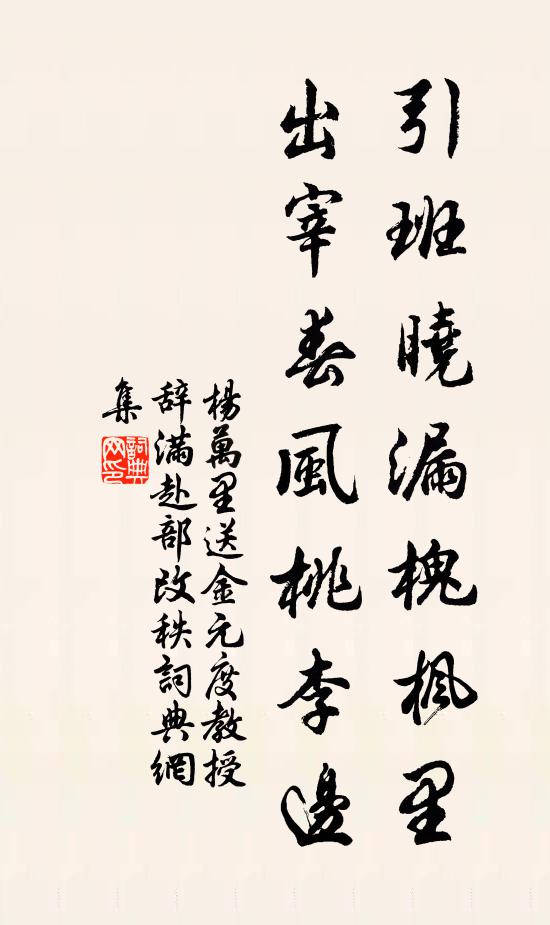 引班曉漏槐楓里
出宰春風桃李邊
楊萬里送金元度教授
辭滿赴部改秩詞典網
集
詞典網印